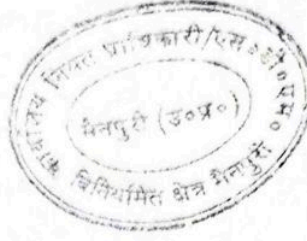 कार्यालय नियत प्राधिकारी/एस०डी०एम०
मैनपुरी (उ०प्र०)
विनियमित क्षेत्र मैनपुरी